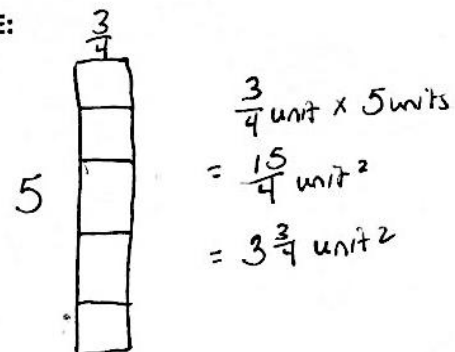 E:
3/4
5
3/4 unit × 5 units
= 15/4 unit²
= 3 3/4 unit²